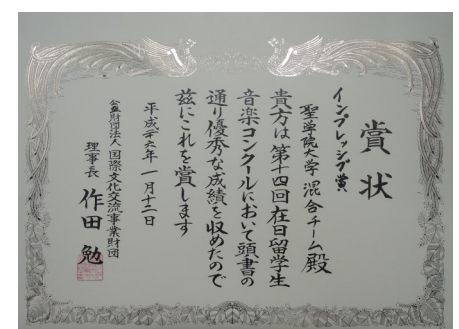 賞状
インプレッシブ賞
聖学院大学 混合チーム殿
貴方は第十四回在日留学生
音楽コンクールにおいて頭書の
通り優秀な成績を収めたので
茲にこれを賞します
平成二十六年一月十二日
公益財団法人 国際文化交流事業財団
理事長 作田 勉